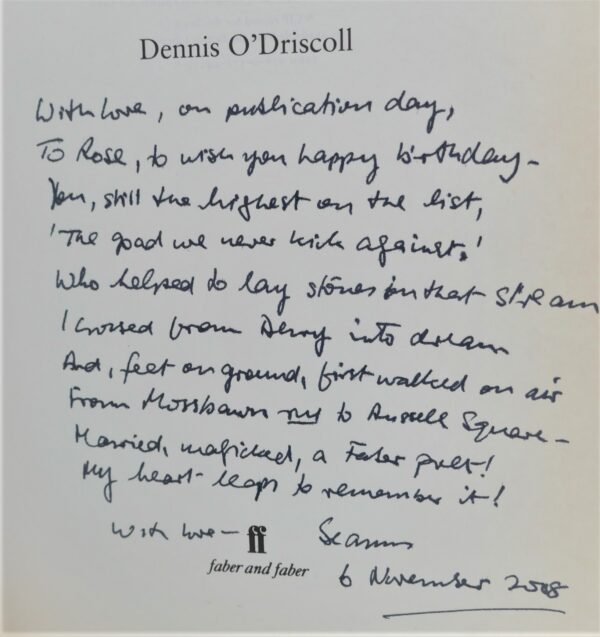 Dennis O'Driscoll
With love, on publication day,
To Rose, to wish you happy birthday –
You, still the highest on the list,
'The goad we never kick against,'
Who helped to lay stones in that stream
I crossed from Derry into dream
And, feet on ground, first walked on air
From Mossbawn to Russell Square –
Married, magicked, a Faber poet!
My heart leaps to remember it!
With love –
ff
Seamus
faber and faber
6 November 2008